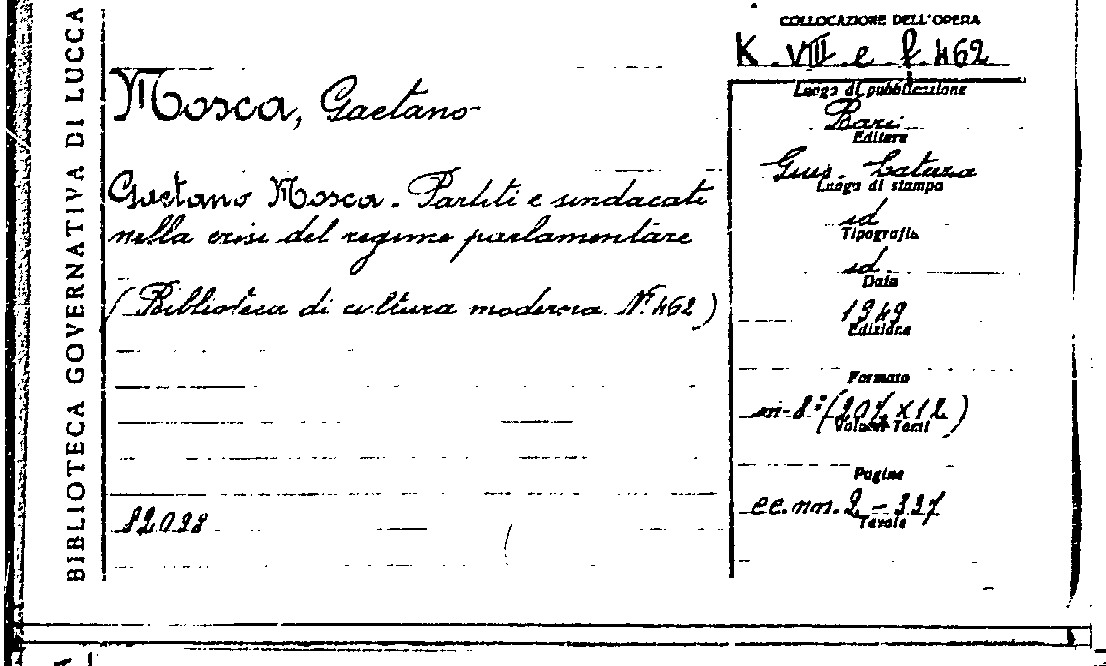 BIBLIOTECA GOVERNATIVA DI LUCCA
COLLOCAZIONE DELL'OPERA
K. VIII e f. 462
Mosca, Gaetano
Gaetano Mosca - Partiti e sindacati
nella crisi del regime parlamentare
(Biblioteca di cultura moderna N. 462)
82098
Luogo di pubblicazione
Bari
Editore
Gius. Laterza
Luogo di stampa
id
Tipografia
id
Data
1949
Edizione
Formato
in-8° (20½ x 12)
Volumi Tomi
Pagine
cc. nn. 2 - 327
Tavole